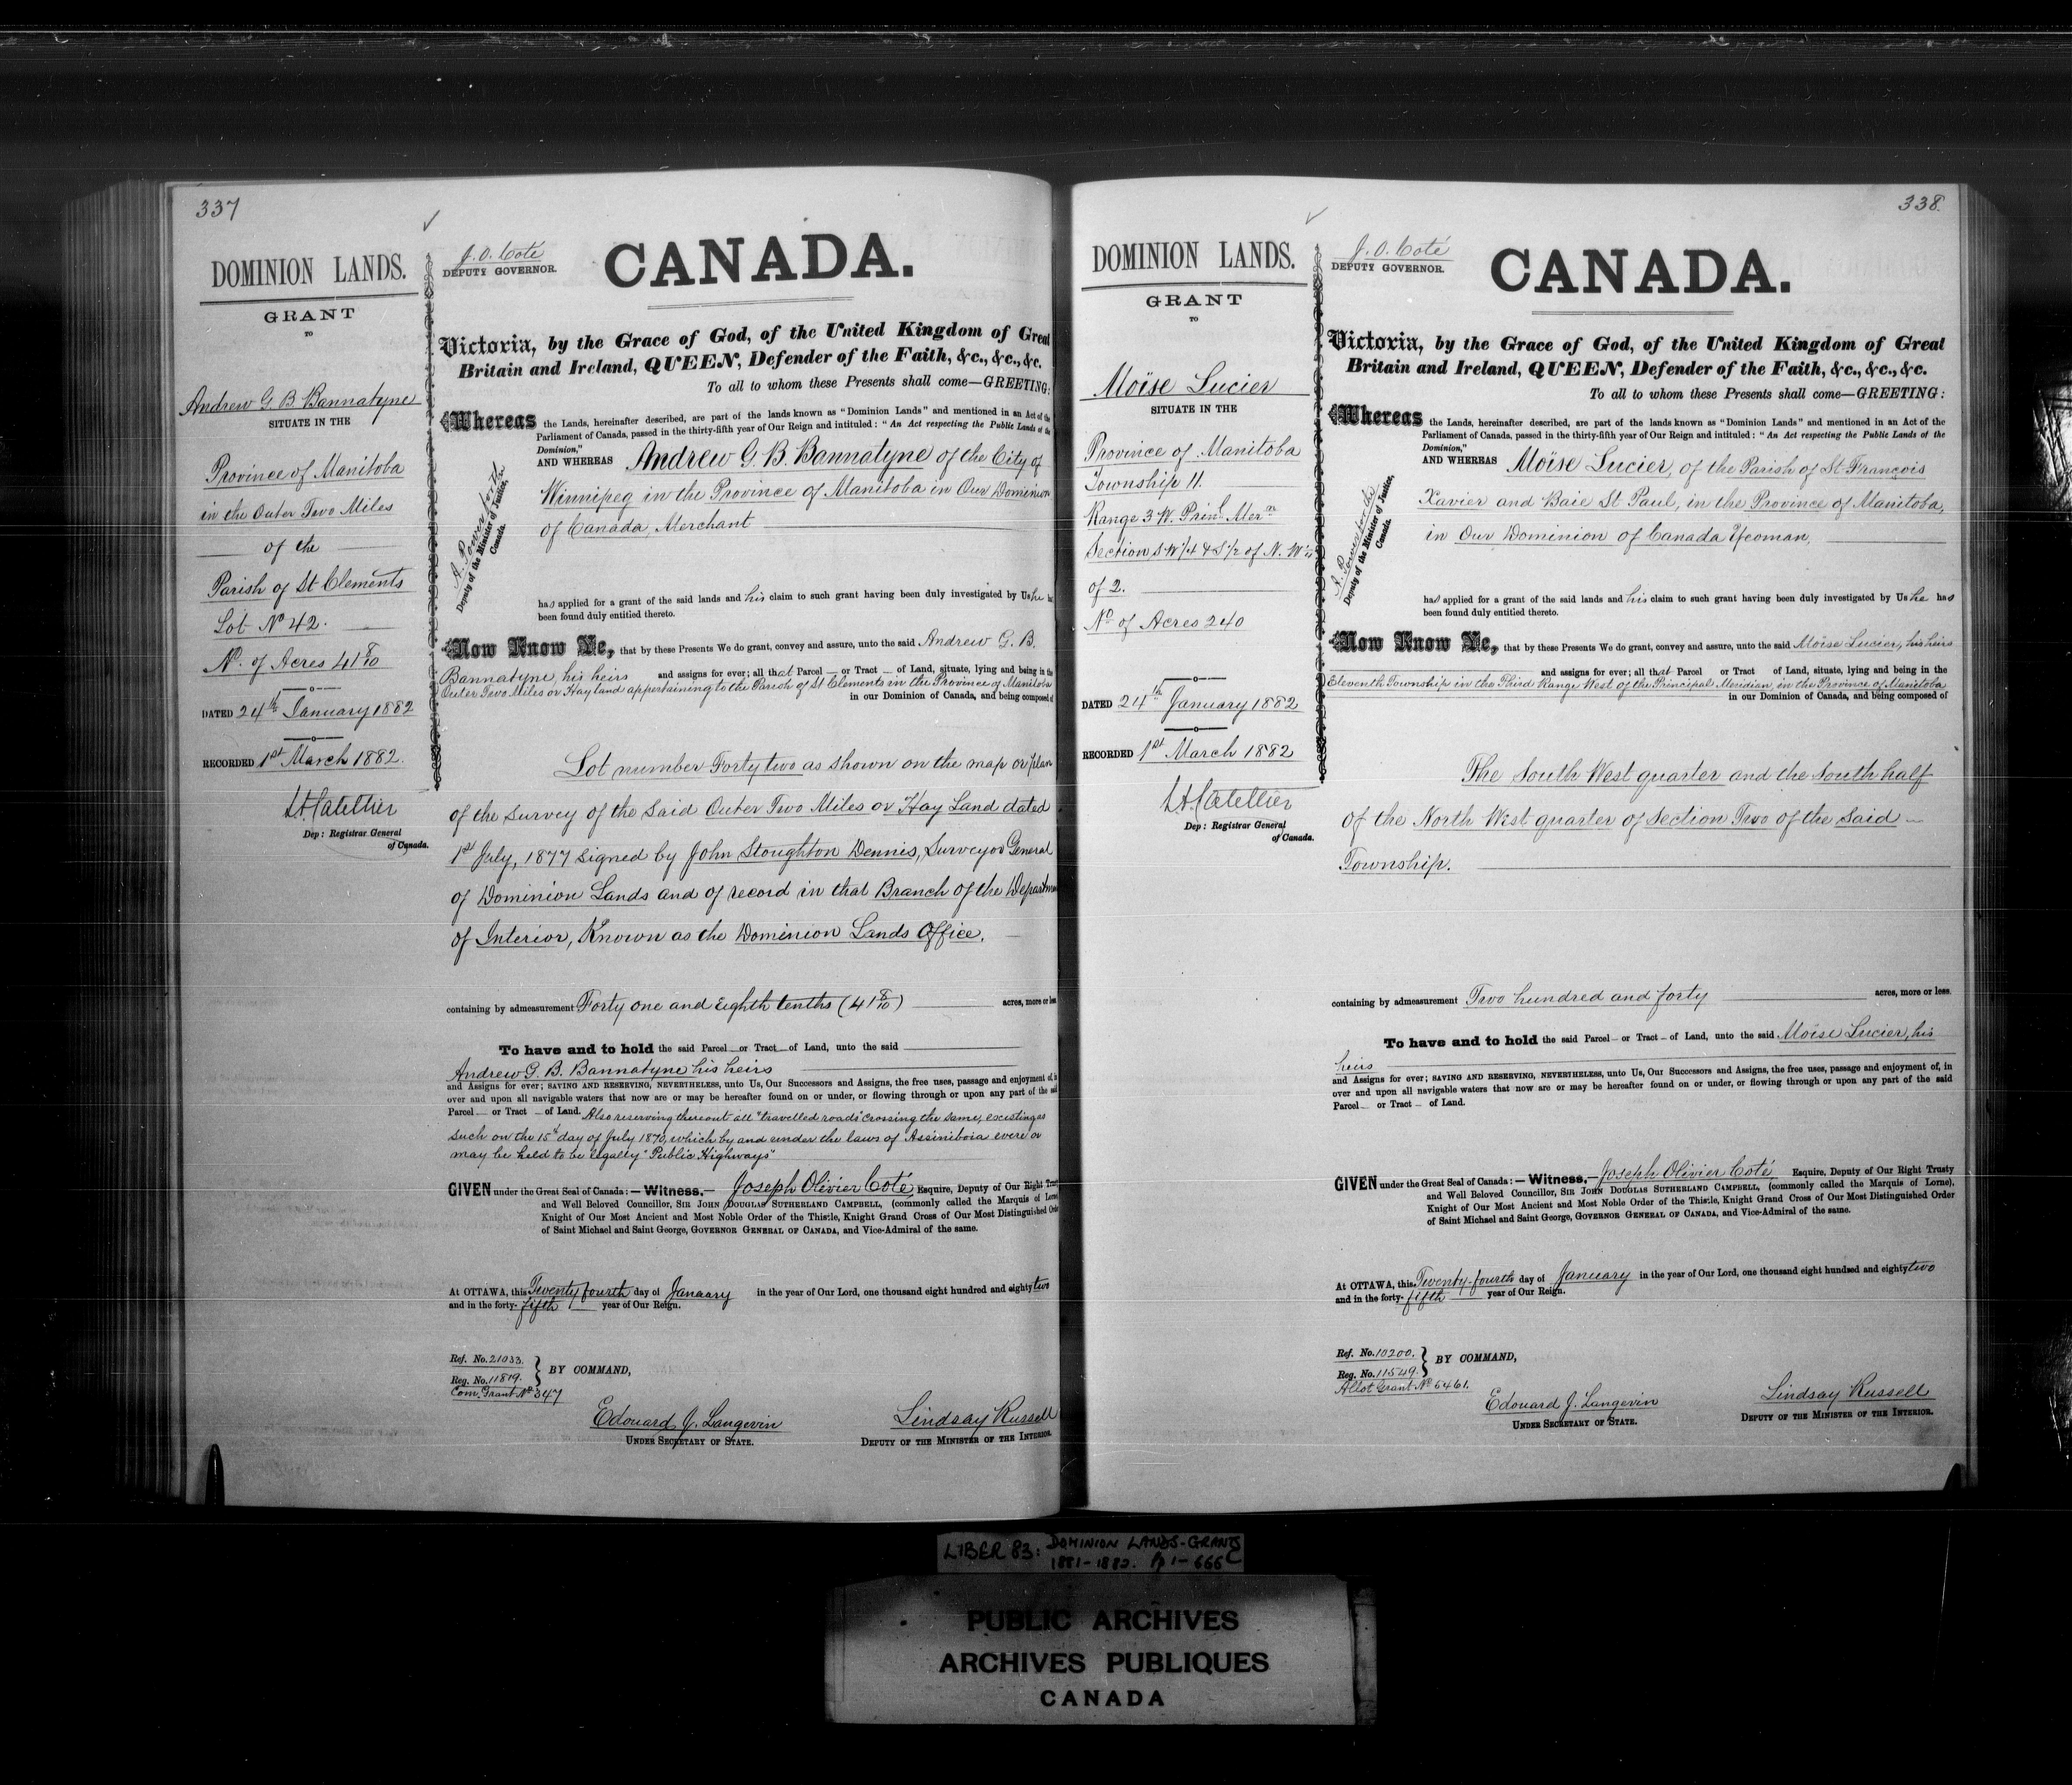 337
DOMINION LANDS.
GRANT
TO
Andrew G. B Bannatyne
SITUATE IN THE
Province of Manitoba
in the Outer Two Miles
of the
Parish of St Clements
Lot No 42.
No. of Acres 41 8/10
DATED 24th January 1882
RECORDED 1st March 1882.
Dep: Registrar General
of Canada.
J. O. Coté
DEPUTY GOVERNOR.
CANADA.
Victoria, by the Grace of God, of the United Kingdom of Great
Britain and Ireland, QUEEN, Defender of the Faith, &c., &c., &c.
To all to whom these Presents shall come—GREETING:
A. Power for the
Deputy of the Minister of Justice,
Canada.
Whereas the Lands, hereinafter described, are part of the lands known as "Dominion Lands" and mentioned in an Act of the
Parliament of Canada, passed in the thirty-fifth year of Our Reign and intituled: "An Act respecting the Public Lands of the
Dominion,"
AND WHEREAS Andrew G. B. Bannatyne of the City of
Winnipeg in the Province of Manitoba in Our Dominion
of Canada, Merchant
has applied for a grant of the said lands and his claim to such grant having been duly investigated by Us he
been found duly entitled thereto.
Now Know Ye, that by these Presents We do grant, convey and assure, unto the said Andrew G. B.
Bannatyne, his heirs and assigns for ever; all that Parcel or Tract of Land, situate, lying and being in the
Outer Two Miles or Hay land appertaining to the Parish of St Clements in the Province of Manitoba
in our Dominion of Canada, and being composed of
Lot number Forty two as shown on the map or plan
of the survey of the said Outer Two Miles or Hay Land dated
1st July, 1877 signed by John Stoughton Dennis, Surveyor General
of Dominion Lands and of record in that Branch of the Departmen
of Interior, Known as the Dominion Lands Office.
containing by admeasurement Forty one and Eighth tenths (41 8/10) acres, more or less
To have and to hold the said Parcel or Tract of Land, unto the said
Andrew G. B. Bannatyne his heirs
and Assigns for ever; SAVING AND RESERVING, NEVERTHELESS, unto Us, Our Successors and Assigns, the free uses, passage and enjoyment of, in
over and upon all navigable waters that now are or may be hereafter found on or under, or flowing through or upon any part of the said
Parcel or Tract of Land. Also reserving thereout all "travelled roads" crossing the same, existing as
such on the 15th day of July 1870, which by and under the laws of Assiniboia were or
may be held to be legally "Public Highways"
GIVEN under the Great Seal of Canada:—Witness,— Joseph Olivier Coté Esquire, Deputy of Our Right Trusty
and Well Beloved Councillor, SIR JOHN DOUGLAS SUTHERLAND CAMPBELL, (commonly called the Marquis of Lorne)
Knight of Our Most Ancient and Most Noble Order of the Thistle, Knight Grand Cross of Our Most Distinguished Order
of Saint Michael and Saint George, GOVERNOR GENERAL OF CANADA, and Vice-Admiral of the same.
At OTTAWA, this Twenty fourth day of January in the year of Our Lord, one thousand eight hundred and eighty two
and in the forty-fifth year of Our Reign.
Ref. No. 21033.
Reg. No. 11819.
Com. Grant No. 347
BY COMMAND,
Edouard J. Langevin
UNDER SECRETARY OF STATE.
Lindsay Russell
DEPUTY OF THE MINISTER OF THE INTERIOR.
338.
DOMINION LANDS.
GRANT
TO
Moïse Lucier
SITUATE IN THE
Province of Manitoba
Township 11.
Range 3 W. Prinl. Mern
Section S W 1/4 & S 1/2 of N. W 1/4
of 2.
No. of Acres 240
DATED 24th January 1882
RECORDED 1st March 1882
Dep: Registrar General
of Canada.
J. O. Coté
DEPUTY GOVERNOR.
CANADA.
Victoria, by the Grace of God, of the United Kingdom of Great
Britain and Ireland, QUEEN, Defender of the Faith, &c., &c., &c.
To all to whom these Presents shall come—GREETING:
Power for the
Deputy of the Minister of Justice,
Canada.
Whereas the Lands, hereinafter described, are part of the lands known as "Dominion Lands" and mentioned in an Act of the
Parliament of Canada, passed in the thirty-fifth year of Our Reign and intituled: "An Act respecting the Public Lands of the
Dominion,"
AND WHEREAS Moïse Lucier, of the Parish of St. François
Xavier and Baie St Paul, in the Province of Manitoba,
in Our Dominion of Canada Yeoman,
has applied for a grant of the said lands and his claim to such grant having been duly investigated by Us he has
been found duly entitled thereto.
Now Know Ye, that by these Presents We do grant, convey and assure, unto the said Moïse Lucier, his heirs
and assigns for ever; all that Parcel or Tract of Land, situate, lying and being in the
Eleventh Township in the Third Range West of the Principal Meridian, in the Province of Manitoba
in our Dominion of Canada, and being composed of
The South West quarter and the South half
of the North West quarter of Section Two of the said
Township.
containing by admeasurement Two hundred and forty acres, more or less.
To have and to hold the said Parcel or Tract of Land, unto the said Moïse Lucier, his
heirs
and Assigns for ever; SAVING AND RESERVING, NEVERTHELESS, unto Us, Our Successors and Assigns, the free uses, passage and enjoyment of, in
over and upon all navigable waters that now are or may be hereafter found on or under, or flowing through or upon any part of the said
Parcel or Tract of Land.
GIVEN under the Great Seal of Canada:—Witness,—Joseph Olivier Coté Esquire, Deputy of Our Right Trusty
and Well Beloved Councillor, SIR JOHN DOUGLAS SUTHERLAND CAMPBELL, (commonly called the Marquis of Lorne),
Knight of Our Most Ancient and Most Noble Order of the Thistle, Knight Grand Cross of Our Most Distinguished Order
of Saint Michael and Saint George, GOVERNOR GENERAL OF CANADA, and Vice-Admiral of the same.
At OTTAWA, this Twenty-fourth day of January in the year of Our Lord, one thousand eight hundred and eighty two
and in the forty-fifth year of Our Reign.
Ref. No. 10200.
Reg. No. 11549.
Allot Grant No 5461.
BY COMMAND,
Edouard J. Langevin
UNDER SECRETARY OF STATE.
Lindsay Russell
DEPUTY OF THE MINISTER OF THE INTERIOR.
LIBER 83: DOMINION LANDS-GRANTS
1881-1882. Pp 1-666
PUBLIC ARCHIVES
ARCHIVES PUBLIQUES
CANADA